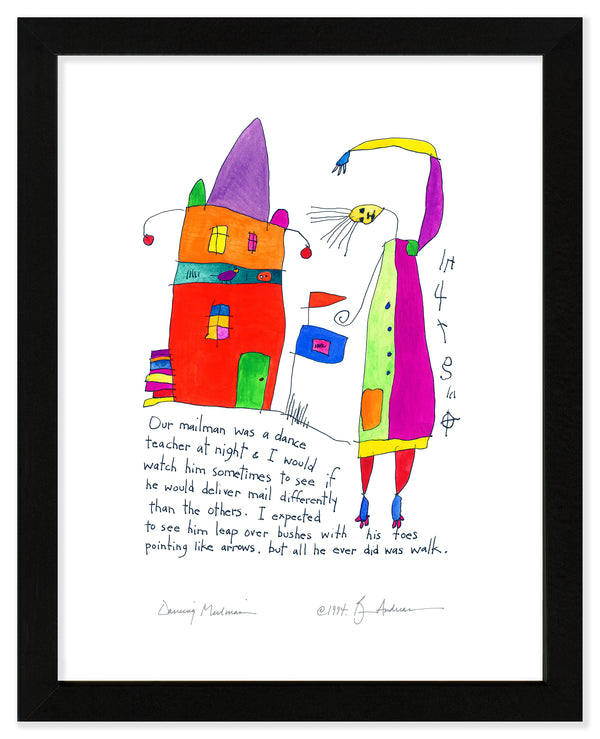 Our mailman was a dance
teacher at night & I would
watch him sometimes to see if
he would deliver mail differently
than the others. I expected
to see him leap over bushes with his toes
pointing like arrows, but all he ever did was walk.
Dancing Mailman
©1994. Andreas